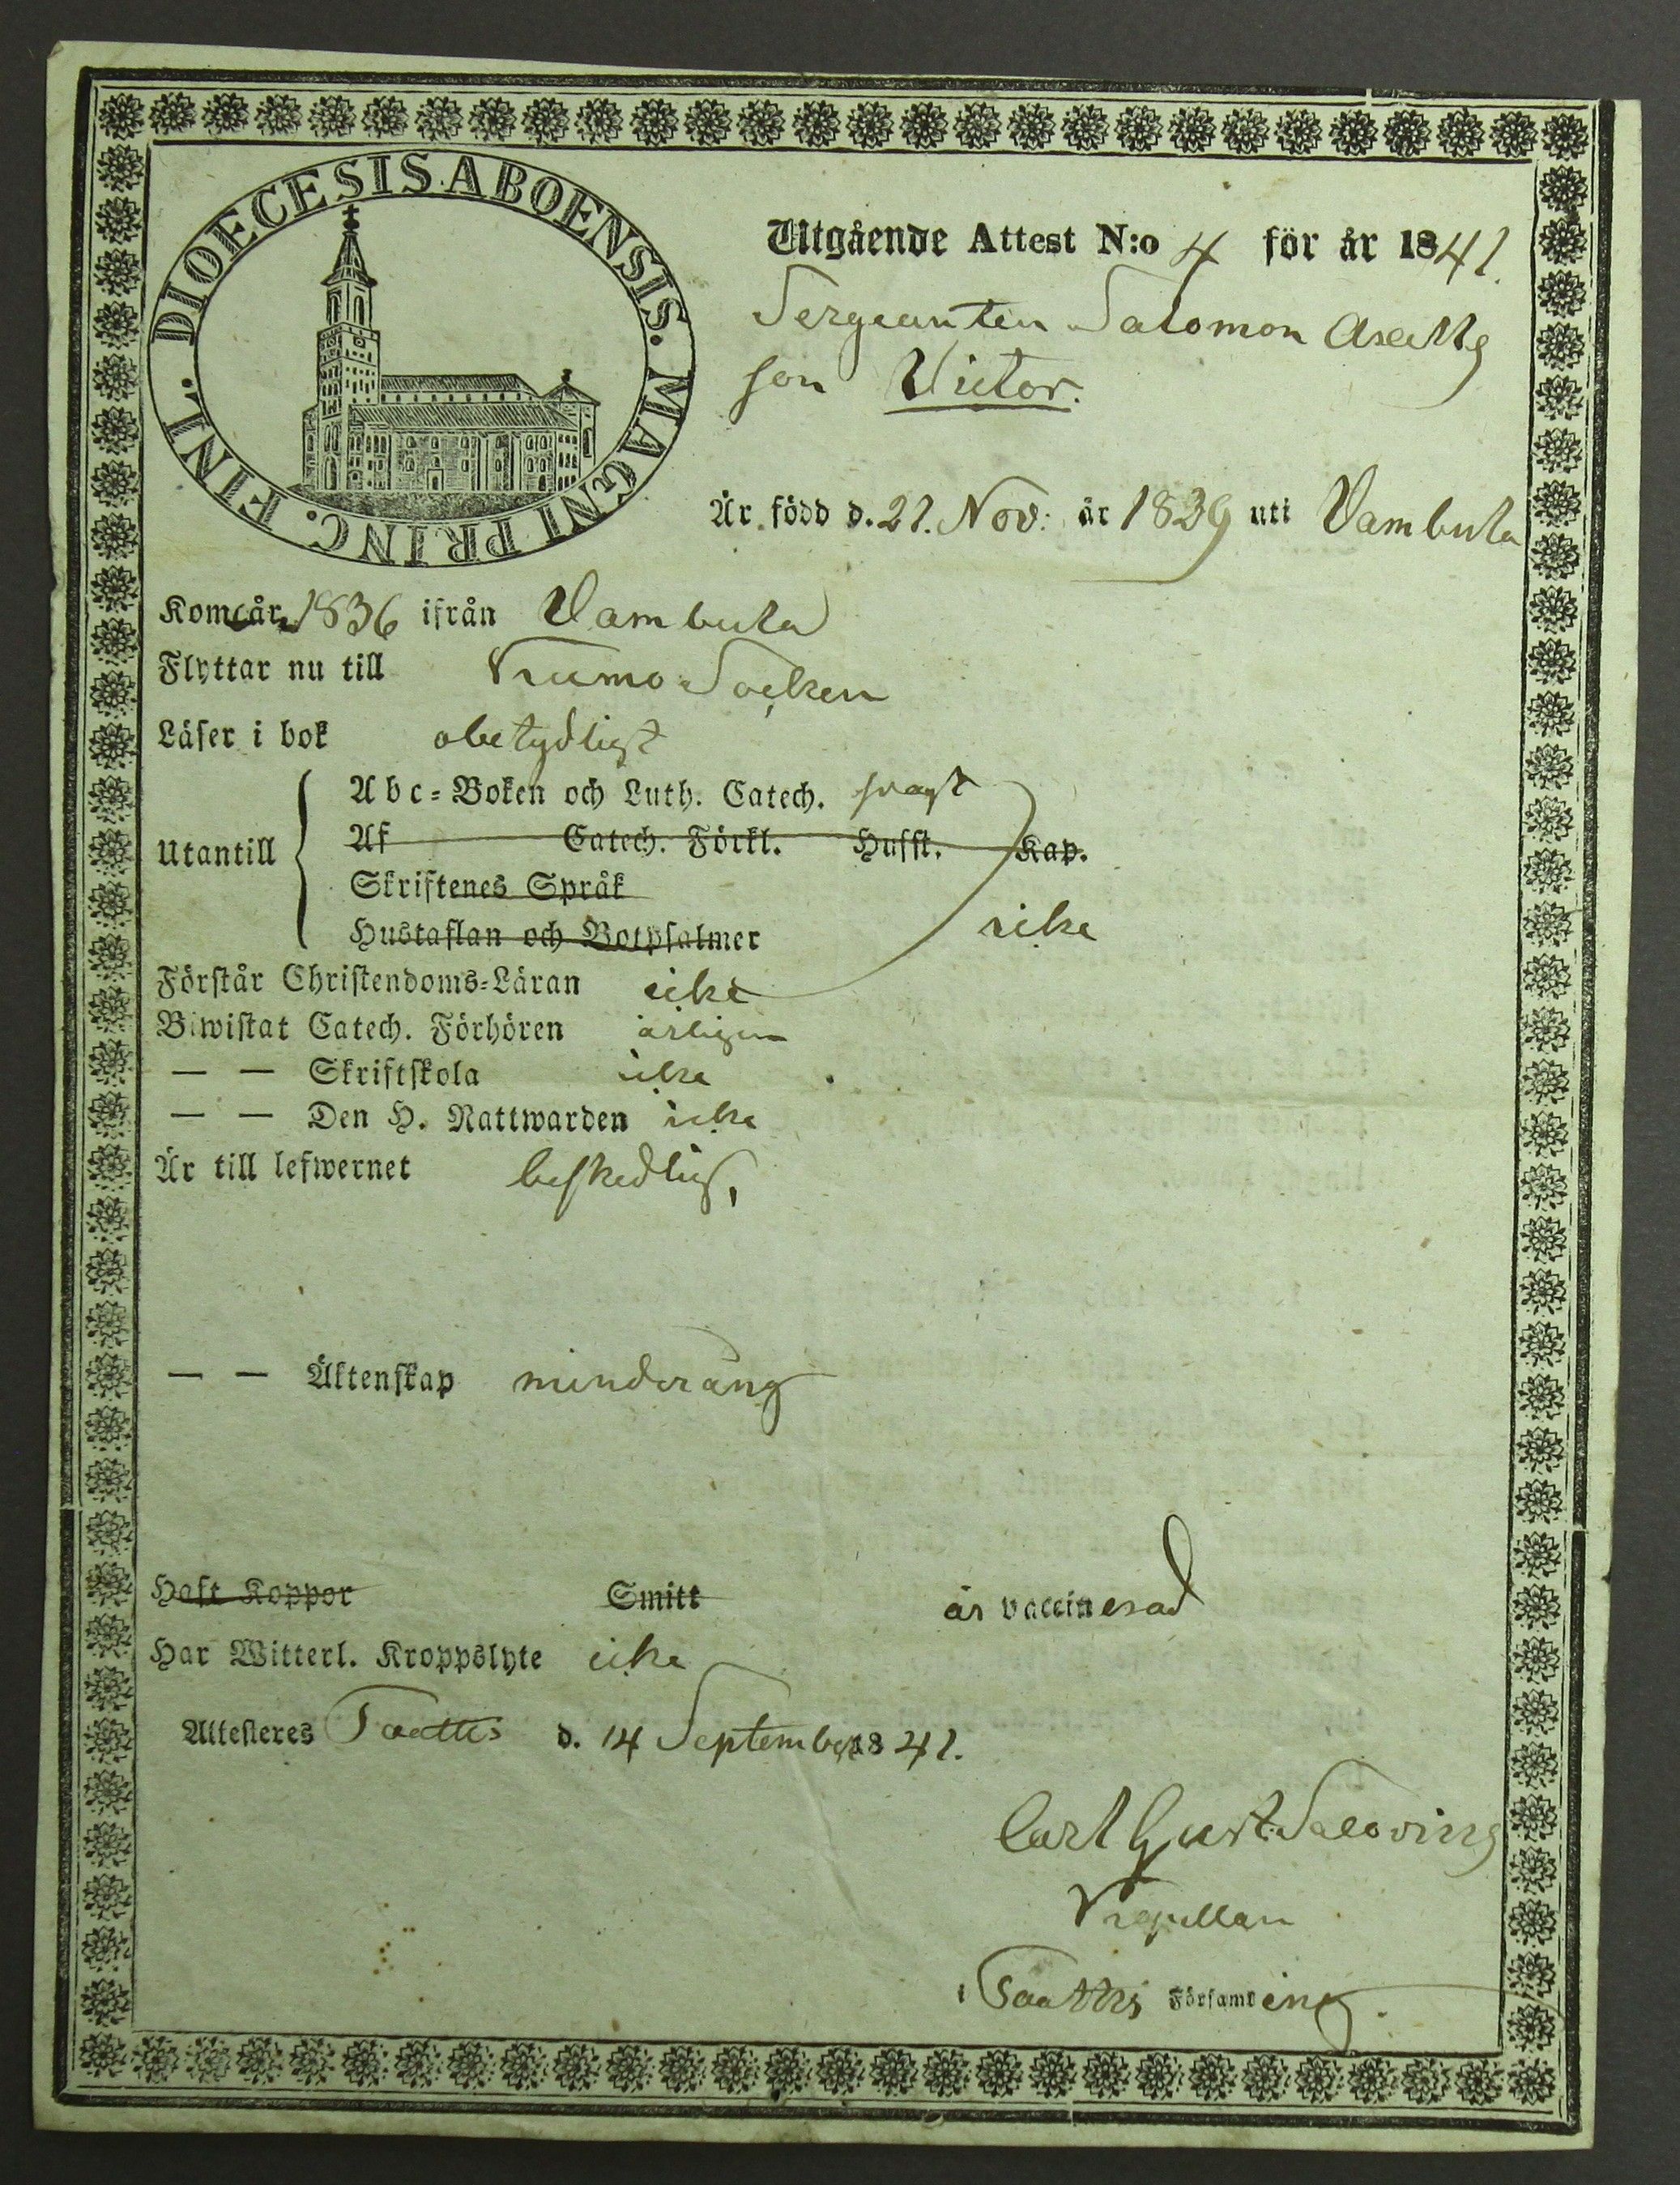 DIOECESIS ABOENSIS. MAGNI PRINC. FINL.
Utgående Attest N:o 4 för år 1841.
Sergeanten Salomon
son Victor.
Är född d. 21. Nov: år 1839 uti Vambula
Kom år 1836 ifrån Vambula
Flyttar nu till Kumo Socken
Läser i bok obetydligt
Utantill
Abc-Boken och Luth. Catech. svagt
Af Catech. Förkl. Husst. Kap.
Skriftenes Språk
Hustaflan och Botpsalmer icke
Förstår Christendoms-Läran icke
Biwistat Catech. Förhören årligen
— — Skriftskola icke
— — Den H. Nattwarden icke
Är till lefwernet beskedlig,
— — Äktenskap minderårig
Haft Koppor Smitt är vaccinerad
Har Witterl. Kroppslyte icke
Attesteres d. 14 September 1841.
Carl Gust.
Kapellan
i Församl ing.